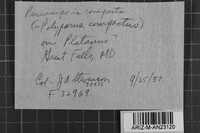 (= Polyporus compactus)
on Platanus
Great Falls, MD
Col - J A Stevenson
9/25/37
F 32969
ARIZ-M-AN23120